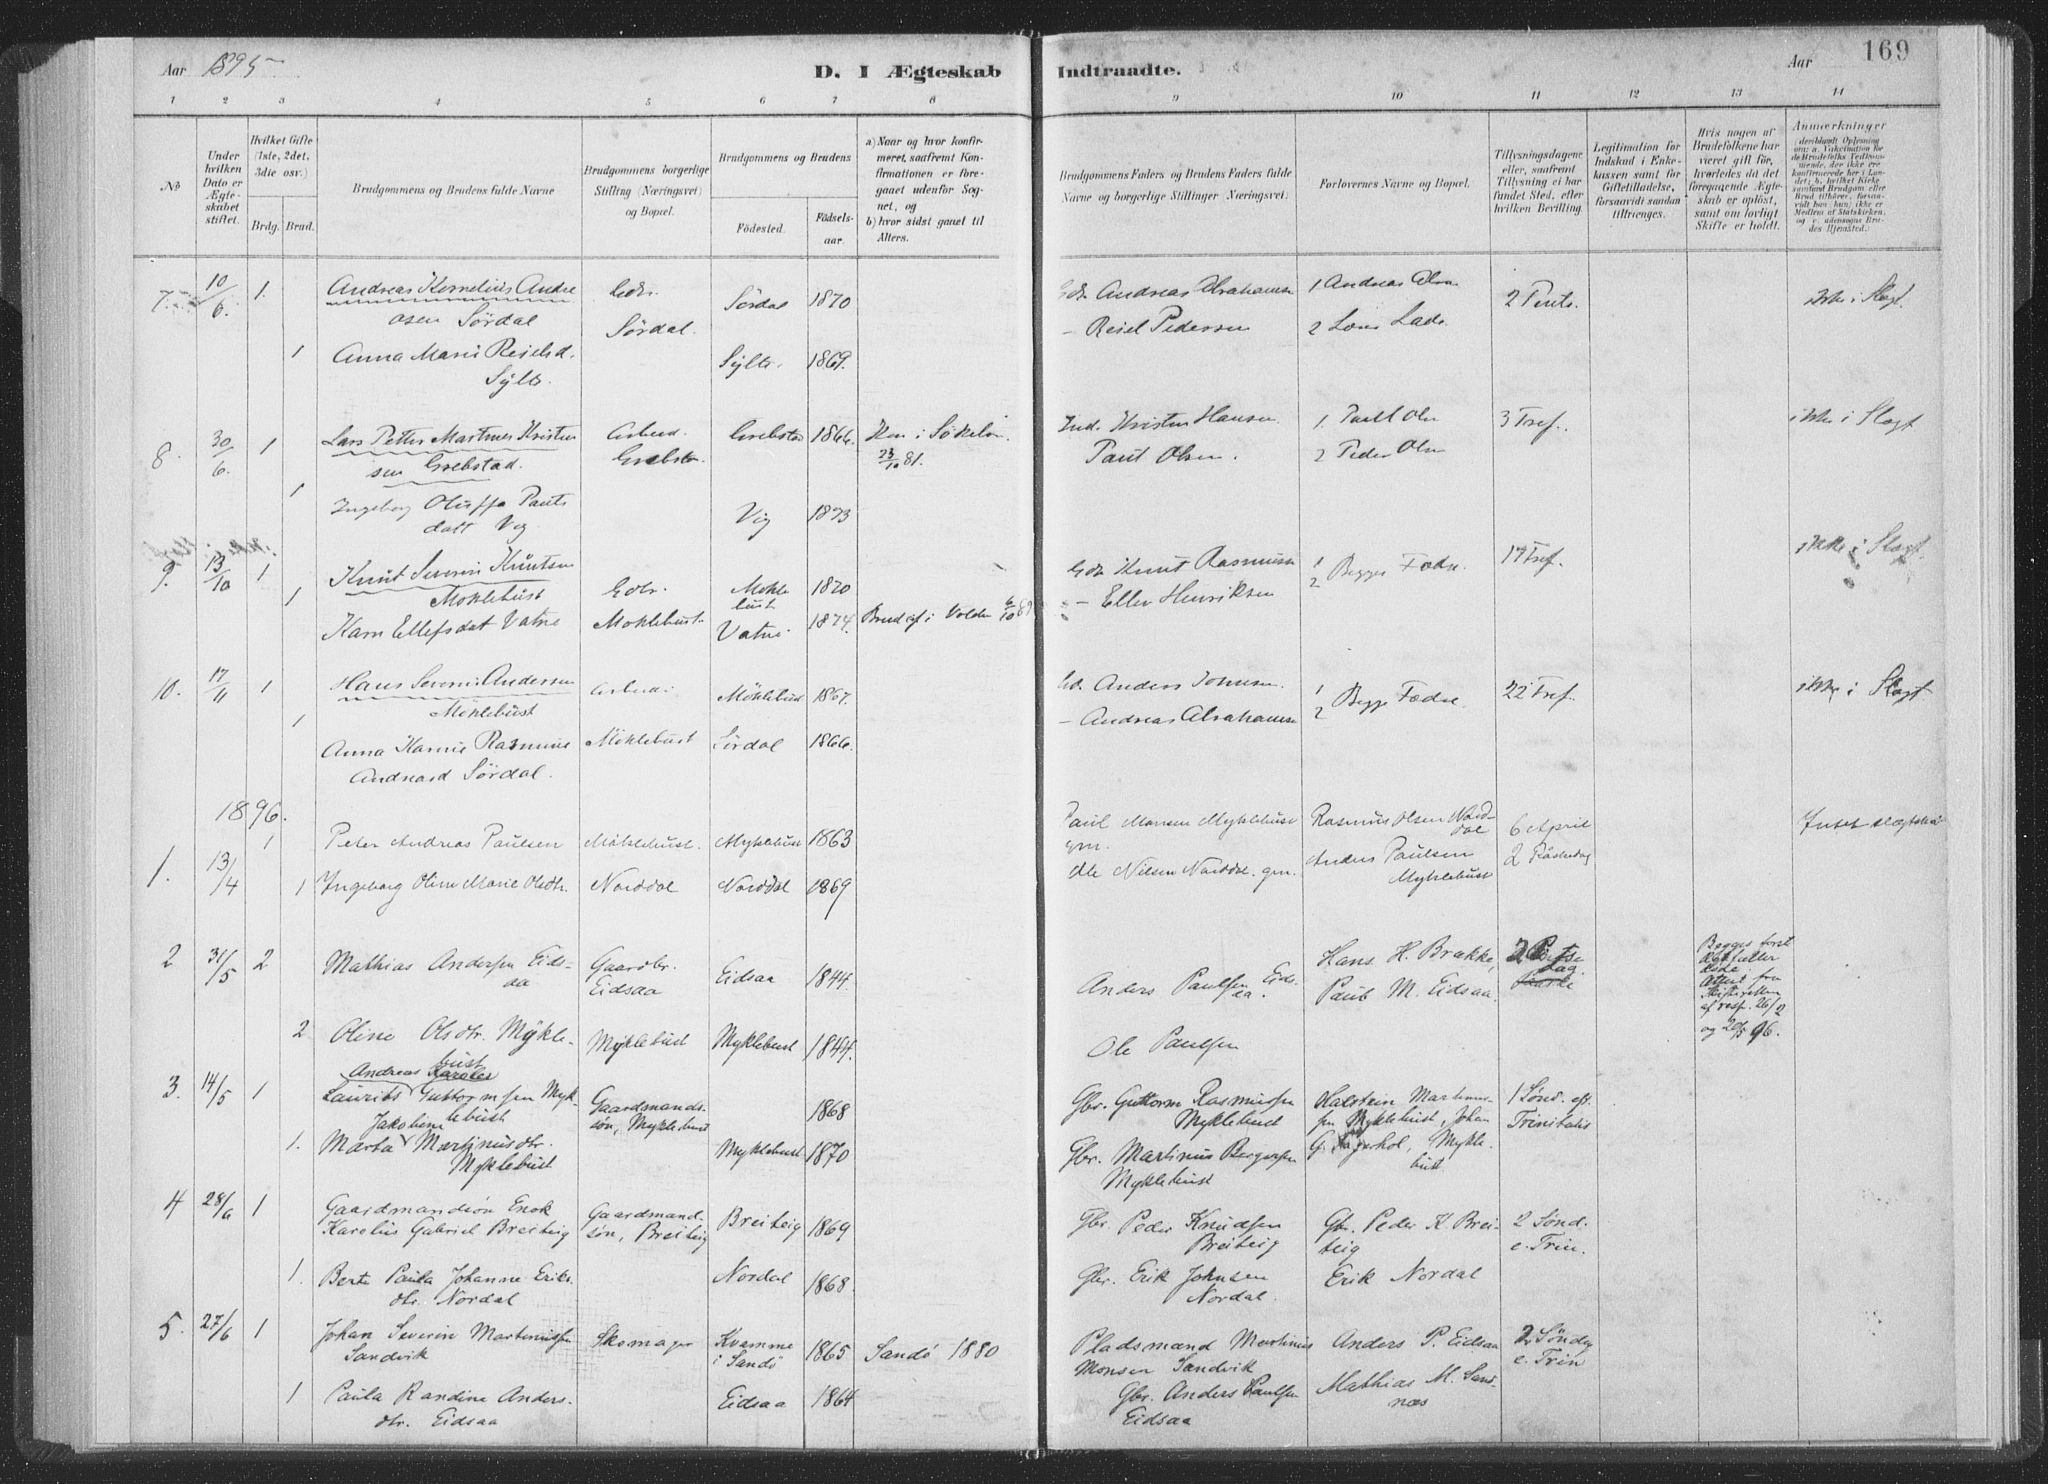 Aar 1895
D. I Ægteskab Indtraadte.
Aar
169
1 2 3 4 5 6 7 8 9 10 11 12 13 14
No
Under hvilken Dato er Ægteskabet stiftet.
Hvilket Gifte (1ste, 2det, 3die osv.)
Brdg. Brud.
Brudgommens og Brudens fulde Navne
Brudgommens borgerlige Stilling (Næringsvei) og Bopæl.
Brudgommens og Brudens
Fødested.
Fødselsaar.
a) Naar og hvor konfirmeret, saafremt Konfirmationen er foregaaet udenfor Sognet, og
b) hvor sidst gaaet til Alters.
Brudgommens Faders og Brudens Faders fulde Navne og borgerlige Stillinger Næringsvei.
Forlovernes Navne og Bopæl.
Tillysningsdagene eller, saafremt Tillysning ei har fundet Sted, efter hvilken Bevilling.
Legitimation for Indskud i Enkekassen samt for Giftetilladelse, forsaavidt saadan tiltrænges.
Hvis nogen af Brudefolkene har været gift før, hvorledes da det foregaaende Ægteskab er opløst, samt om lovligt Skifte er holdt.
Anmærkninger
7. 10/6. 1. Andreas Kornelius Andre
asen Sördal
Gdbr. Sördal.
Sördal 1870
Gdbr. Andreas Abrahamsen
1 Andreas Abra
2 Pints.
ikke i Slægt.
1 Anna Marie Reiels d.
Sylte.
Sylte. 1869.
– Reiel Pedersen
8. 30/6. 1 Lars Petter Martinus Kristen
sen Grebstad.
Arbeid.
Grebstad 1866.
23/10 81.
Ind. Kristen Hansen
1 Paul Olsn
3 Tref.
ikke i Slægt
1 Ingeborg Oluffa Pauls
datt Vig
Vig 1873
Paul Olsen.
2 Peder Olsn
9. 13/10 1 Knut Severin Knutsen
Moklebust
Gdbr.
Mokle
bust 1870
Gdbr Knut Rasmussen
1 2 Begges Fædre.
17 Tref.
ikke i Slægt.
1 Karn Ellefsdat Vatne
Moklebust
Vatne. 1874.
Brud cf. i Volden 6/10 89
– Ellef Henriksen
10. 17/11 1 Hans Severin Andersen
Möklebust
Arbeid.
Möklebust 1867.
Gd. Anders Jonsen.
1 2 Begge Fædre.
22 Tref.
ikke i Slægt
1 Anna Karnie Rasmine
Andreasd Sördal.
Möklebust
Sördal 1866.
– Andreas Abrahamsen
1896.
1. 13/4 1 Peter Andreas Paulsen
Möklebust.
Myklebust 1863
Paul Monsen Myklebust
gm.
Rasmus Olsen Nord-
dal
6 April
2 Paaskedag
Intet slægtskab
1 Ingeborg Oline Marie Olsdtr.
Norddal
Norddal 1869
Ole Nilsen Norddal. gm.
Anders Paulsen
Myklebust
2 31/5 2 Mathias Andersen Eids-
aa
Gaardbr.
Eidsaa
Eidsaa 1844
Anders Paulsen Eids-
aa.
Hans H. Brække,
Paul M. Eidsaa.
2 Pintse
dag.
Begges forst
af resp. 26/2
og 20/3 96.
2 Oline Olsdtr. Mykle-
bust
Myklebust
Myklebust 1844.
Ole Paulsen
3. 14/5 1 Andreas
Laurits Guttormsen Myk-
lebust
Gaardmands-
søn, Myklebust
1868
Gbr. Guttorm Rasmussen
Myklebust
Halstein Martinus-
sen Myklebust, Johan
G. Fagerhol, Mykle-
bust
1 Sønd. eft.
Trinitatis
1. Jakobine
Marta Martinusdtr.
Myklebust
Myklebust 1870
Gbr. Martinus Bergersen
Myklebust
4 28/6 1 Gaardmandsøn Enok
Karolius Gabriel Breiteig
Gaardmand-
søn, Breiteig
Breiteig 1869
Gbr. Peder Knudsen
Breiteig
Gbr. Peder K. Brei-
teig
2 Sønd.
e. Trin.
1. Berte Paula Johanne Eriks-
dtr. Nordal
Nordal 1868.
Gbr. Erik Johnsen
Nordal.
Erik Nordal
5. 27/6 1 Johan Severin Martinussen
Sandvik
Skomager
Kvamme
i Sandö 1865
Sandö 1880
Pladsmand Martinius
Monsen Sandvik
Anders P. Eidsaa
2 Søndg
e. Trin
1 Paula Randine Anders-
dtr. Eidsaa
Eidsaa 1864
Gbr. Anders Paulsen
Eidsaa
Mathias M. Sand-
næs